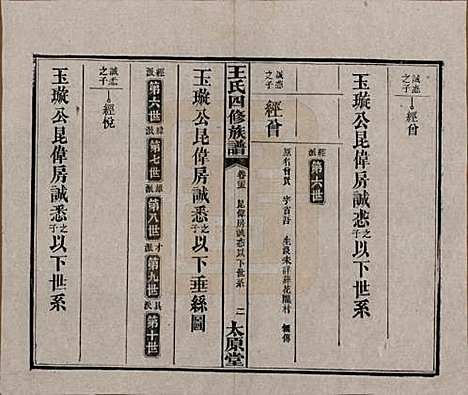 玉璇公昆偉房誠悫之子以下世系
誠悫之子 經曾
經派 第六世
誠悫之子 經曾
原名曾貫 字省吾 生沒未詳葬花園村 缺傳
王氏四修族譜 卷主 昆偉房誠悫以下世系 二 太原堂
玉璇公昆偉房誠悉之子以下垂絲圖
經派 第六世 緯派 第七世 雄派 第八世 才派 第九世 具派 第十世
誠悉之子 經悅
玉璇公昆偉房誠悉之子以下世系